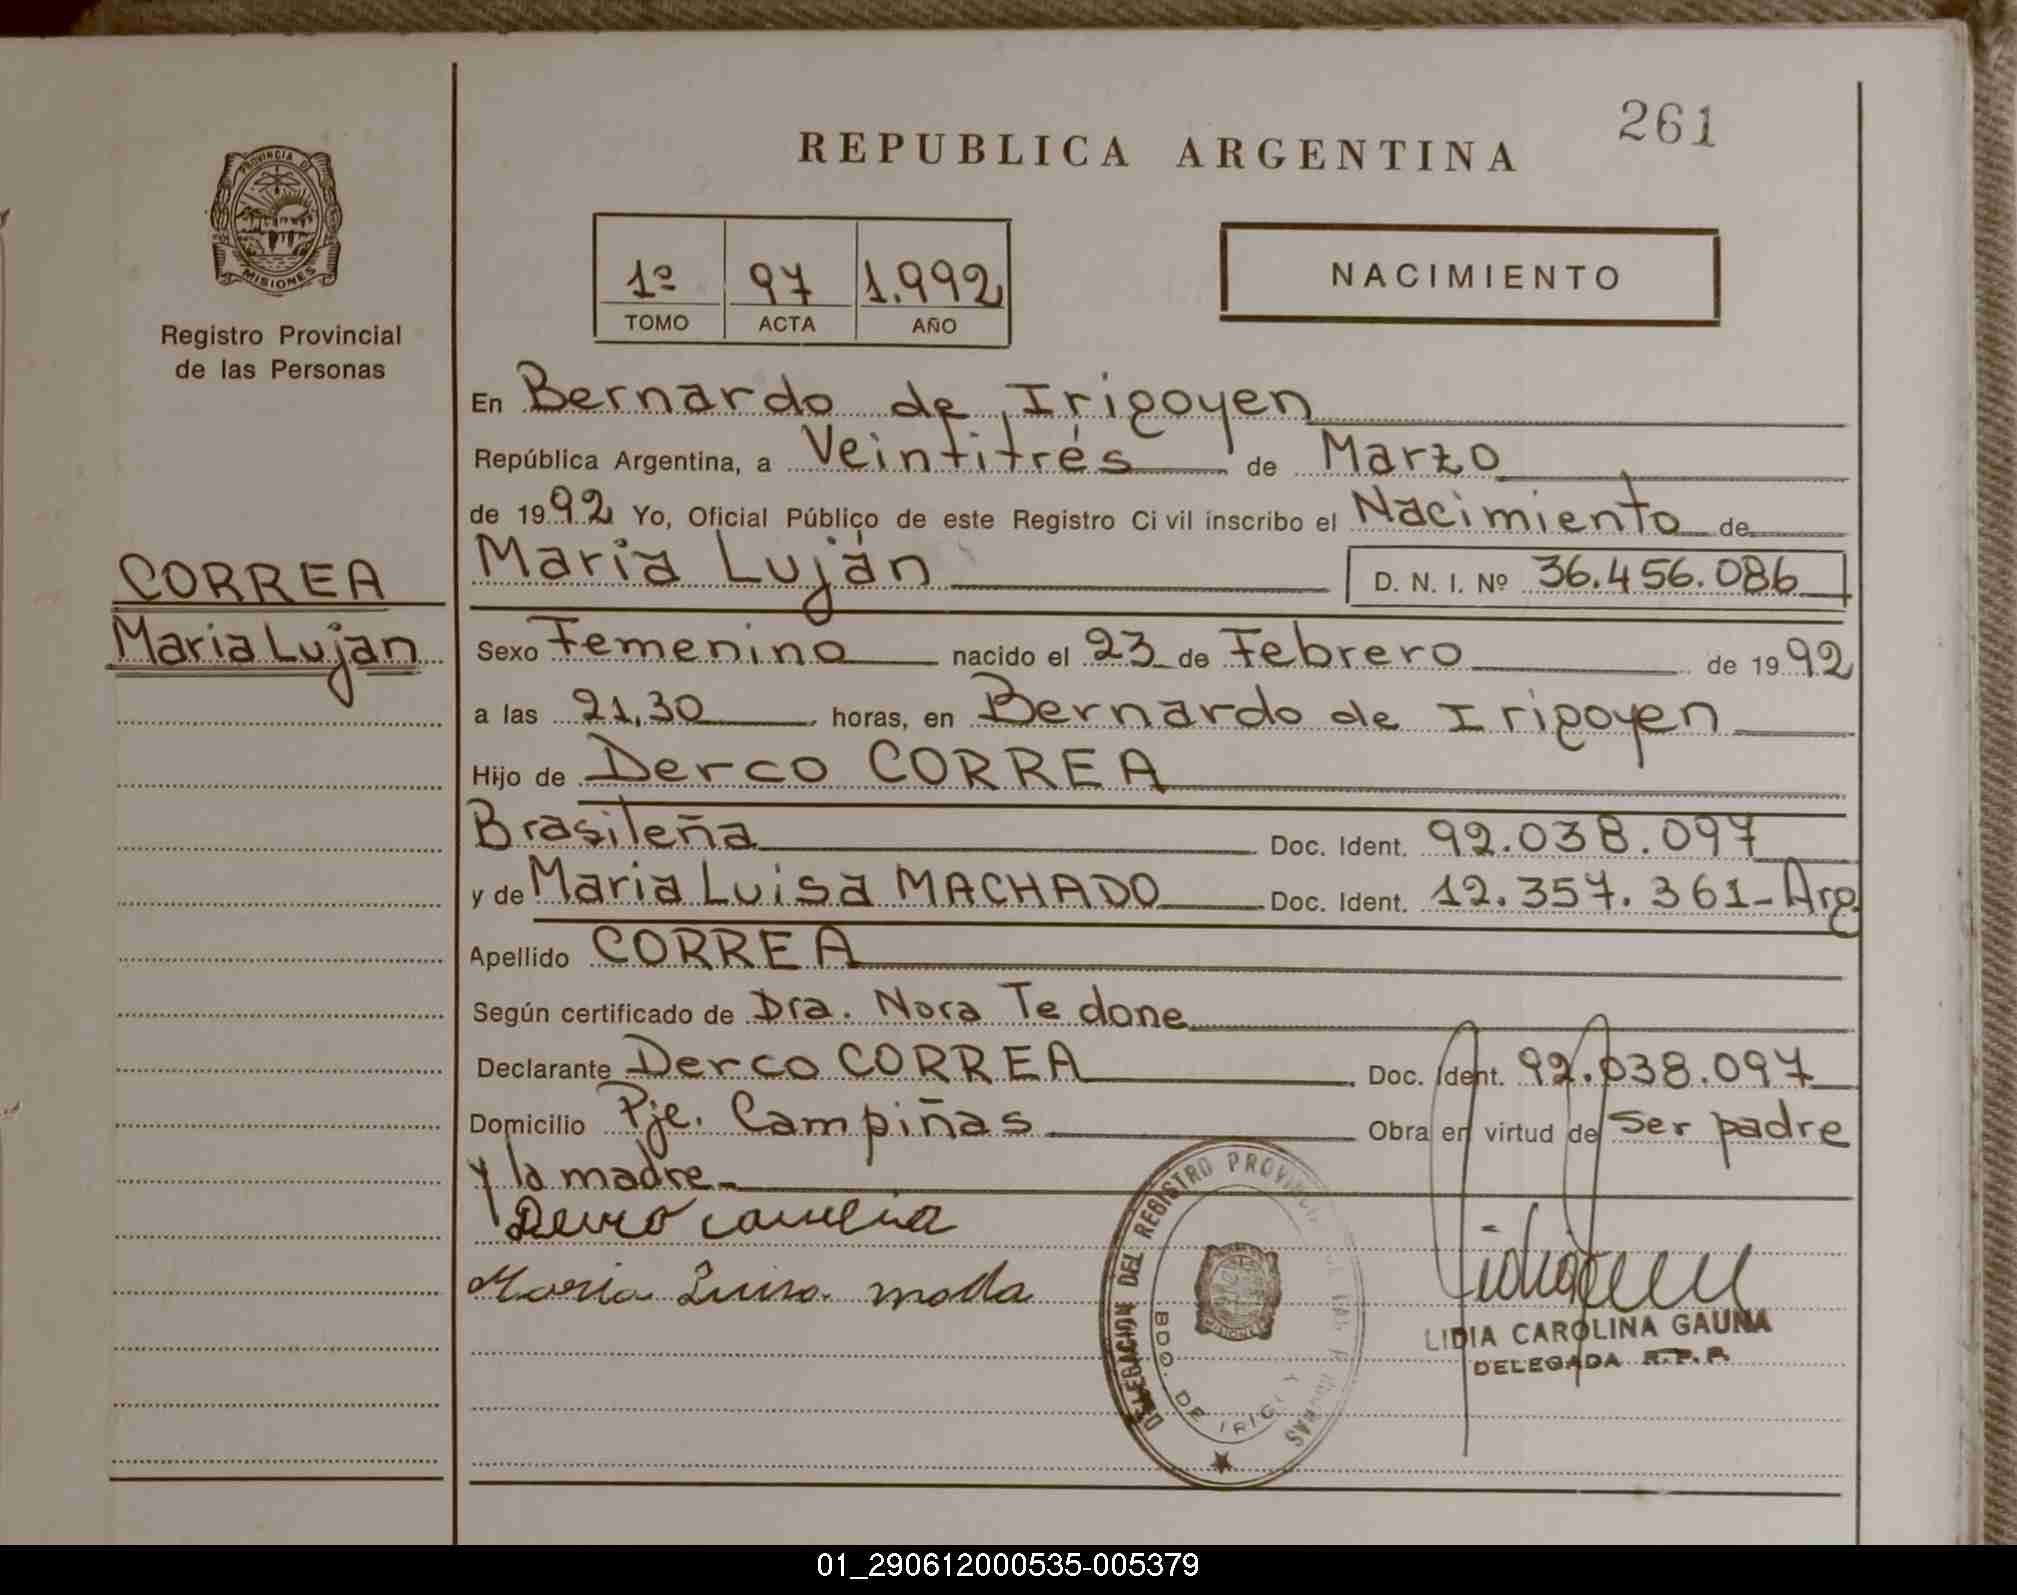 261
REPUBLICA ARGENTINA
PROVINCIA DE
MISIONES
Registro Provincial
de las Personas
1º 97 1.992
TOMO ACTA AÑO
NACIMIENTO
En Bernardo de Irigoyen
República Argentina, a Veintitrés de Marzo
de 1992 Yo, Oficial Público de este Registro Civil inscribo el Nacimiento de
Maria Luján D. N. I. Nº 36.456.086
CORREA
Maria Lujan
Sexo Femenino nacido el 23 de Febrero de 1992
a las 21,30 horas, en Bernardo de Irigoyen
Hijo de Derco CORREA
Brasileña Doc. Ident. 92.038.097
y de Maria Luisa MACHADO Doc. Ident. 12.357.361-Arg
Apellido CORREA
Según certificado de Dra. Nora Tedone
Declarante Derco CORREA Doc. Ident. 92.038.097
Domicilio Pje. Campiñas Obra en virtud de ser padre
y la madre-
Maria Luisa
DELEGACION DEL REGISTRO PROVINCIAL DE LAS PERSONAS
BDO. DE IRIGOYEN
MISIONES
LIDIA CAROLINA GAUNA
DELEGADA R.P.P.
01_290612000535-005379